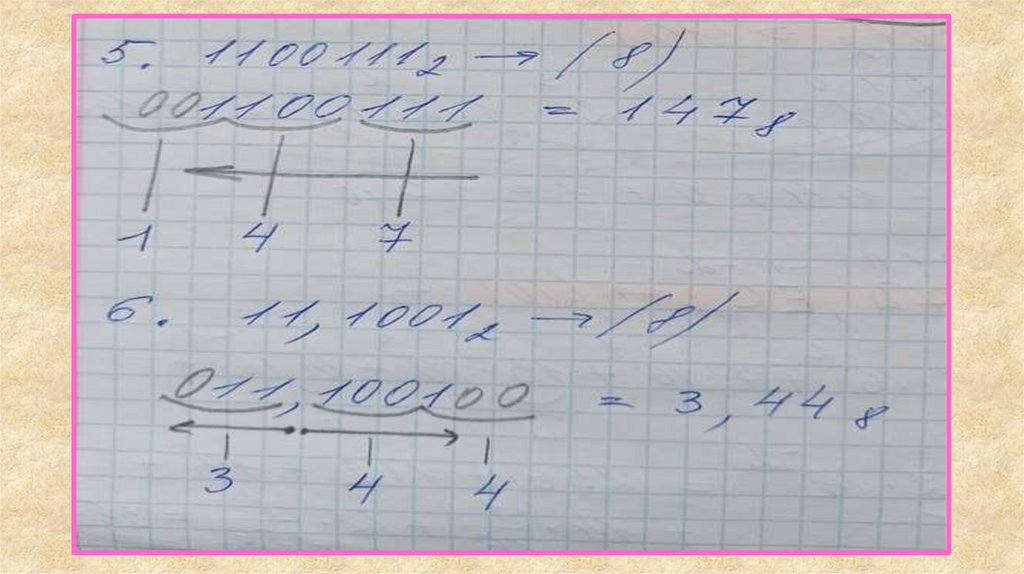 5. 1100111₂ → (8)
001100111 = 147₈
1 4 7
6. 11,1001₂ → (8)
011,100100 = 3,44₈
3 4 4